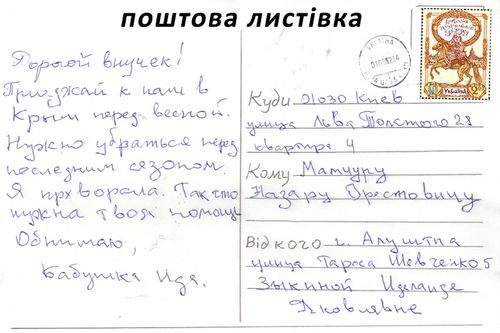 поштова листівка
Дорогой внучек!
Приезжай к нам в
Крым перед весной.
Нужно убраться перед
последним сезоном.
Я прхворала. Так что
нужна твоя помощь
Обнимаю,
Бабушка Ида.
УКРАЇНА
Україна
Куди 01030 Киев
улица Льва Толстого 28
квартира 4
Кому Мамчуру
Назару Орестовичу
Від кого г. Алуштна
улица Тараса Шевченко 5
Зыкиной Иделаиде
Яковлявне